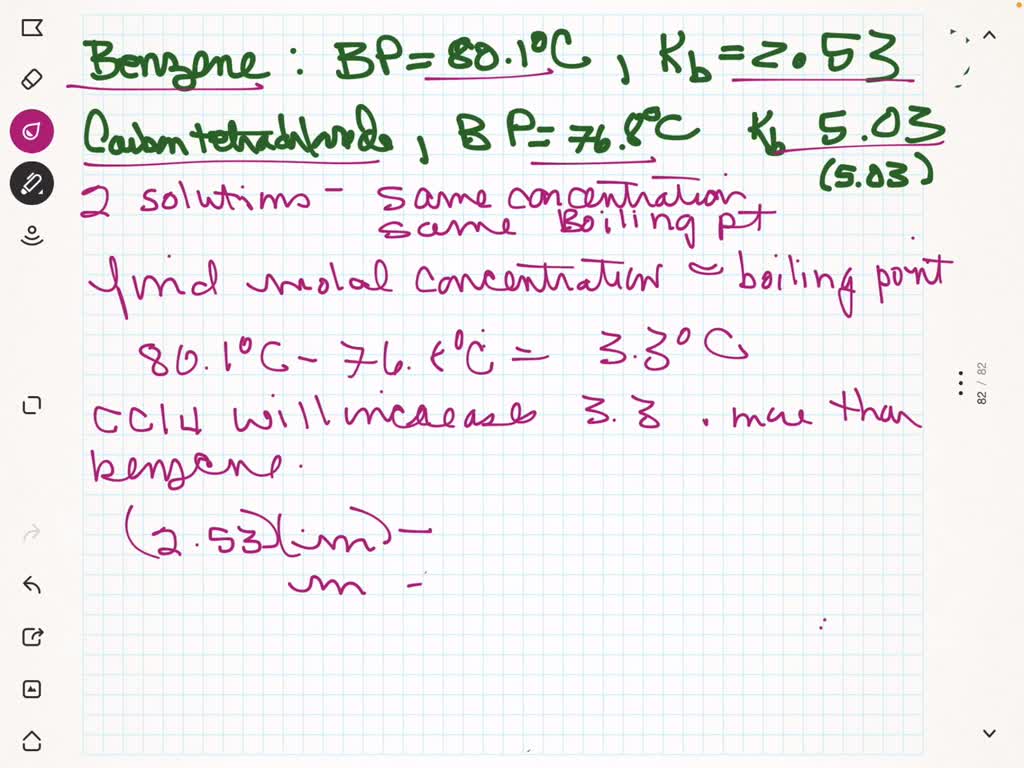 Benzene : BP = 80.1°C , Kb = 2.53
Carbon tetrachloride , BP = 76.8°C Kb 5.03
(5.03)
2 solutions - same concentration
same Boiling pt
find molal concentration ~ boiling point
80.1°C - 76.8°C = 3.3°C
CCl4 will increases 3.3 . more than
benzene.
(2.53)(im) =
m =
82 / 82